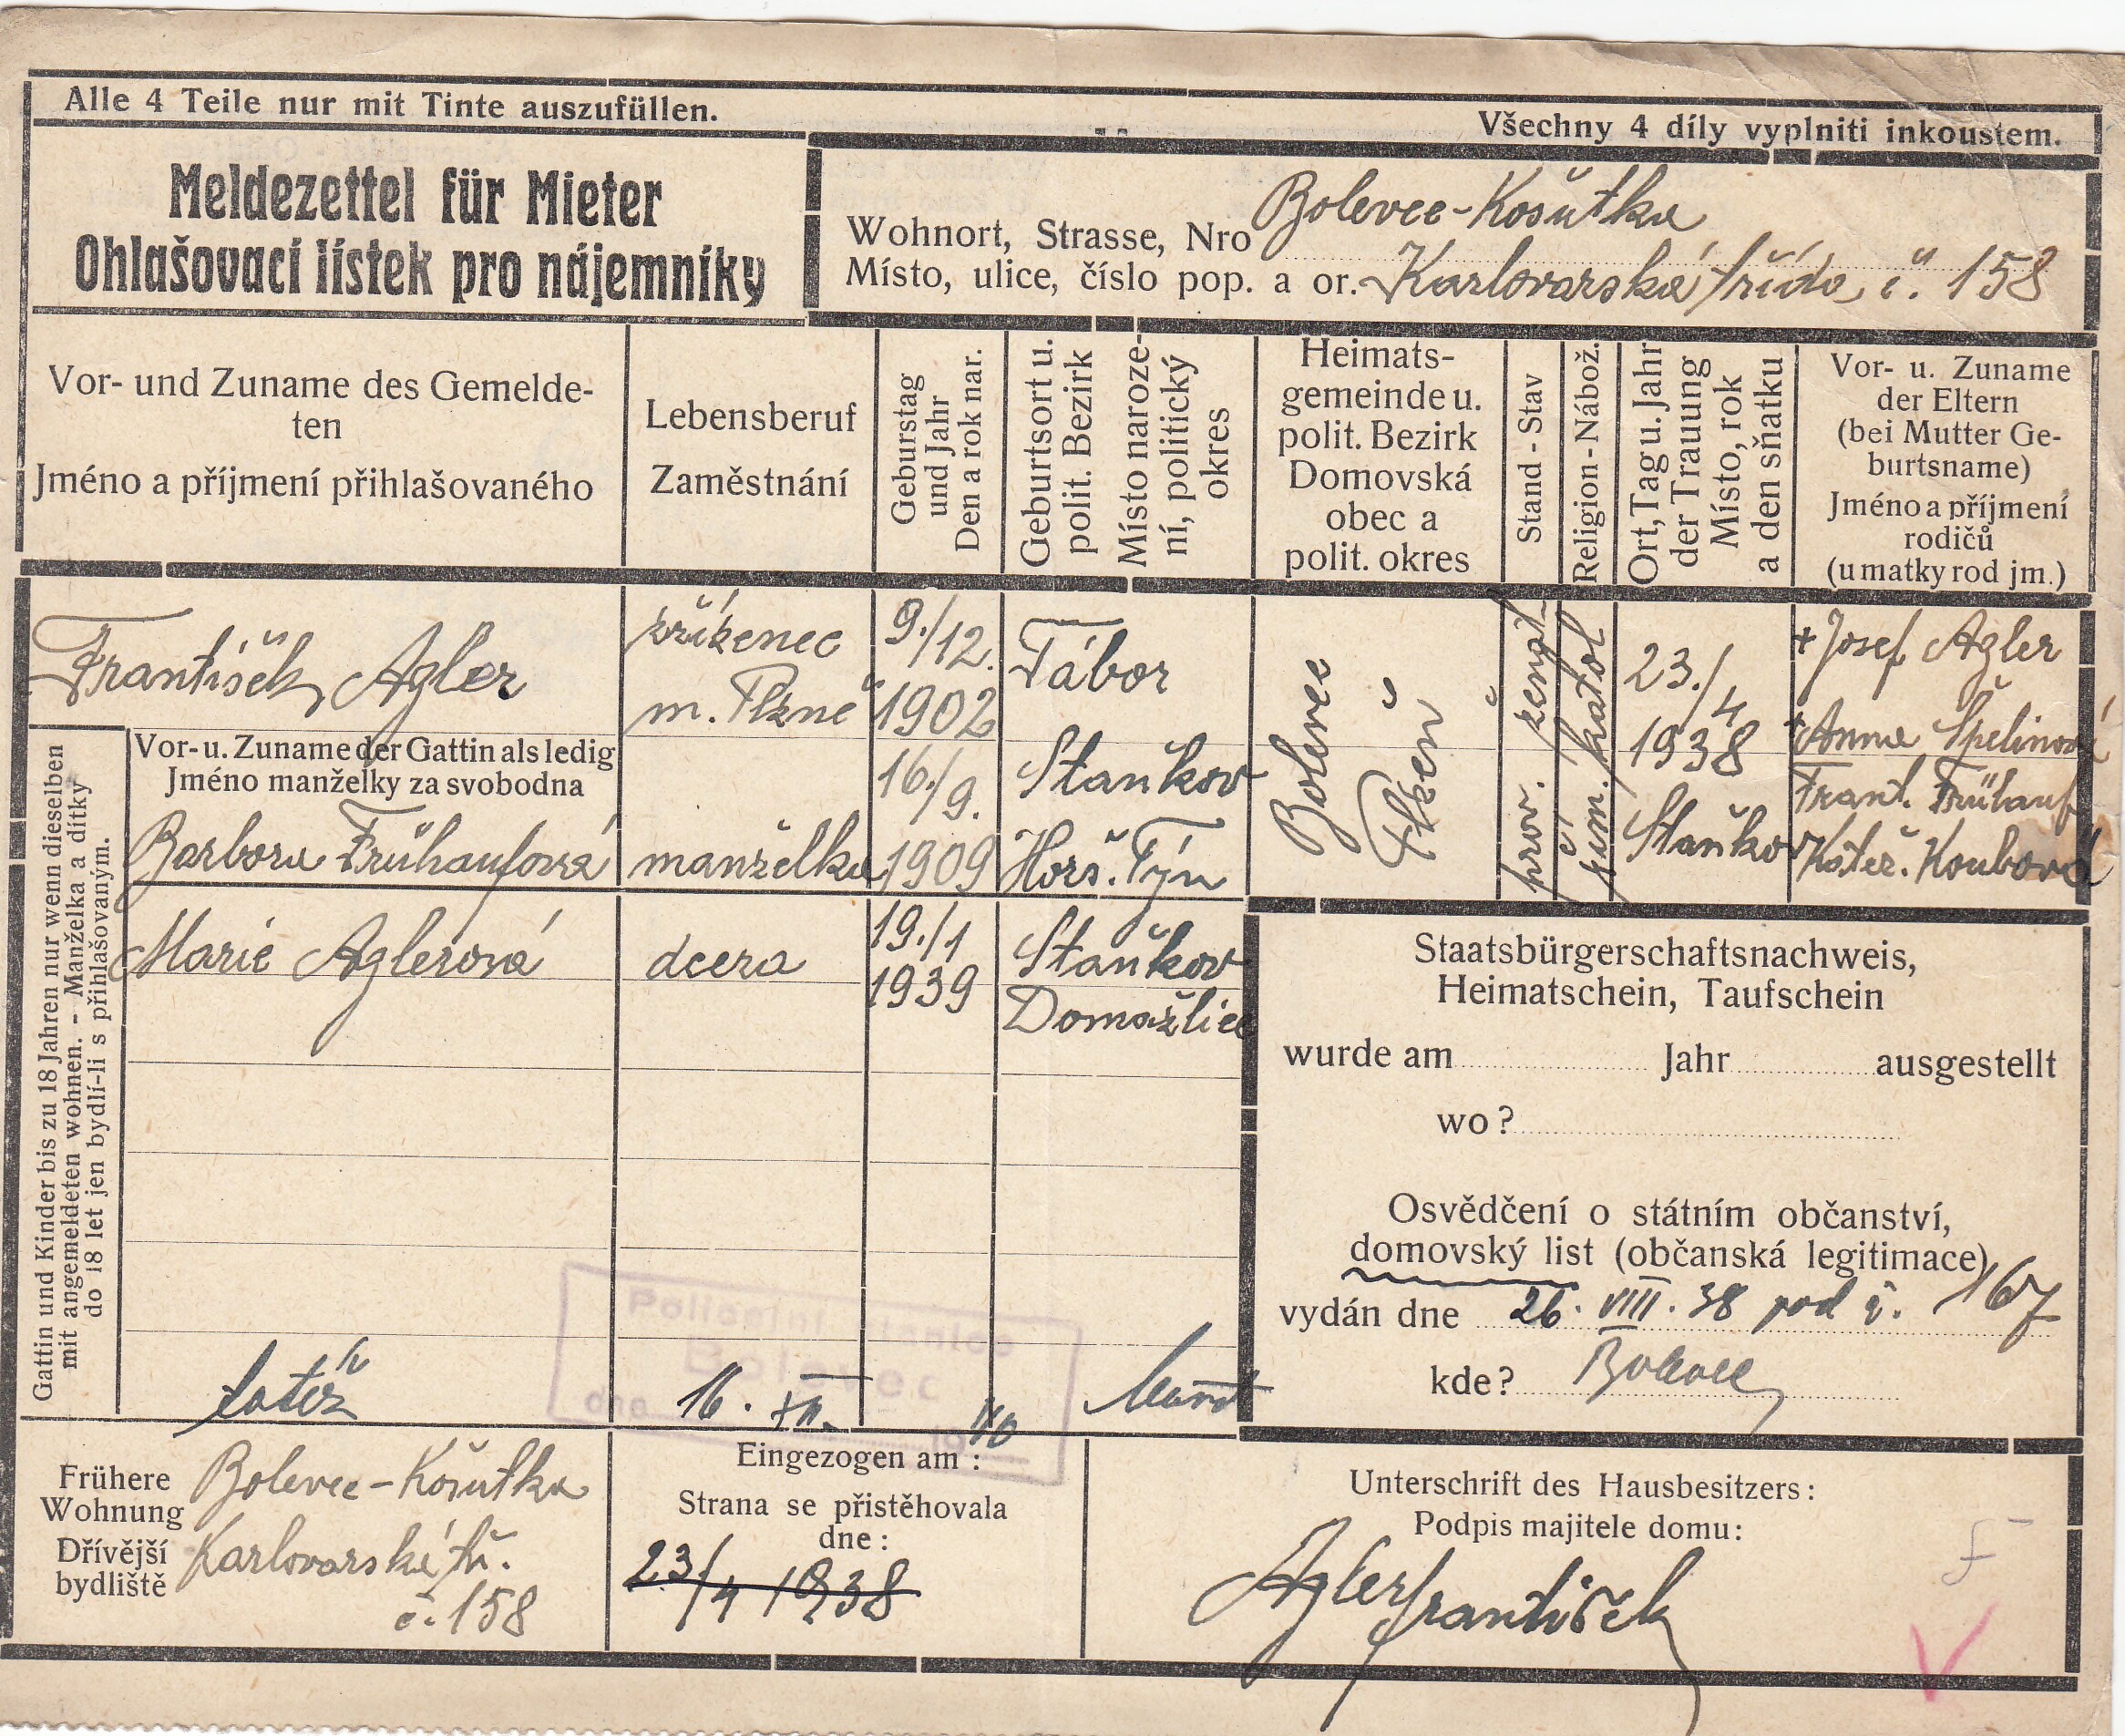 Alle 4 Teile nur mit Tinte auszufüllen.
Všechny 4 díly vyplniti inkoustem.
Meldezettel für Mieter
Ohlašovací lístek pro nájemníky
Wohnort, Strasse, Nro Bolevec-Košutka
Místo, ulice, číslo pop. a or. Karlovarská třída č. 158
Vor- und Zuname des Gemelde-
ten
Jméno a příjmení přihlašovaného
Lebensberuf
Zaměstnání
Geburstag
und Jahr
Den a rok nar.
Geburtsort u.
polit. Bezirk
Místo naroze-
ní, politický
okres
Heimats-
gemeinde u.
polit. Bezirk
Domovská
obec a
polit. okres
Stand - Stav
Religion - Nábož.
Ort, Tag u. Jahr
der Trauung
Místo, rok
a den sňatku
Vor- u. Zuname
der Eltern
(bei Mutter Ge-
burtsname)
Jméno a příjmení
rodičů
(u matky rod jm.)
František Agler
zřízenec
m. Plzně
9./12.
1902
Tábor
Bolevec
Plzeň
prov. ženat
čř. katol
23./4
1938
Staňkov
+ Josef Agler
+ Anna Špelinová
Frant. Frühauf
Kateř. Koubová
Gattin und Kinder bis zu 18 Jahren nur wenn dieselben
mit angemeldeten wohnen. - Manželka a dítky
do 18 let jen bydlí-li s přihlašovaným.
Vor- u. Zuname der Gattin als ledig
Jméno manželky za svobodna
Barbora Frühaufová
manželka
16./9.
1909
Staňkov
Horš. Týn
Marie Aglerová
dcera
19./1
1939
Staňkov
Domažlice
Staatsbürgerschaftsnachweis,
Heimatschein, Taufschein
wurde am Jahr ausgestellt
wo?
Osvědčení o státním občanství,
domovský list (občanská legitimace)
vydán dne 26. VIII. 38 pod č. 167
kde? Bolevec
Policejní stanice
Bolevec
dne 16. XII. 1940
Frühere
Wohnung
Dřívější
bydliště
Bolevec-Košutka
Karlovarská tř.
č. 158
Eingezogen am:
Strana se přistěhovala
dne:
23/4 1938
Unterschrift des Hausbesitzers:
Podpis majitele domu:
Agler František